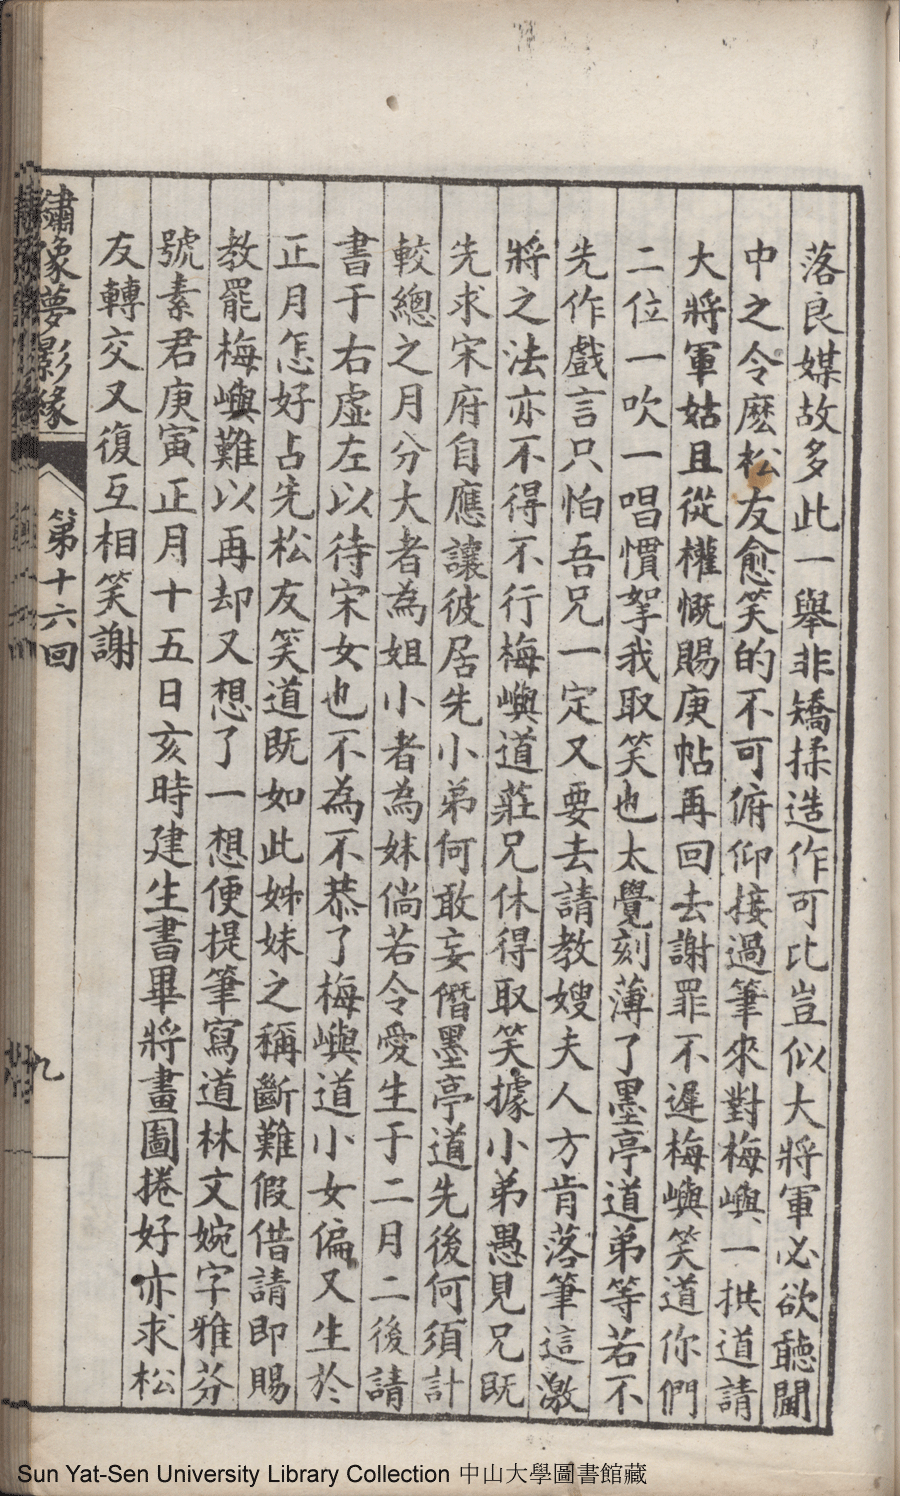 落良媒故多此一舉非矯揉造作可比豈似大將軍必欲聽閫
中之令麽松友愈笑的不可俯仰接過筆來對梅嶼一拱道請
大將軍姑且從權慨賜庚帖再回去謝罪不遲梅嶼笑道你們
二位一吹一唱慣拏我取笑也太覺刻薄了墨亭道弟等若不
先作戲言只怕吾兄一定又要去請教嫂夫人方肯落筆這激
將之法亦不得不行梅嶼道莊兄休得取笑據小弟愚見兄既
先求宋府自應讓彼居先小弟何敢妄僭墨亭道先後何須計
較總之月分大者為姐小者為妹倘若令愛生于二月二後請
書于右虛左以待宋女也不為不恭了梅嶼道小女偏又生於
正月怎好占先松友笑道既如此姊妹之稱斷難假借請即賜
教罷梅嶼難以再却又想了一想便提筆寫道林文婉字雅芬
號素君庚寅正月十五日亥時建生書畢將畫圖捲好亦求松
友轉交又復互相笑謝
繡像夢影緣
第十六回
九
Sun Yat-Sen University Library Collection 中山大學圖書館藏